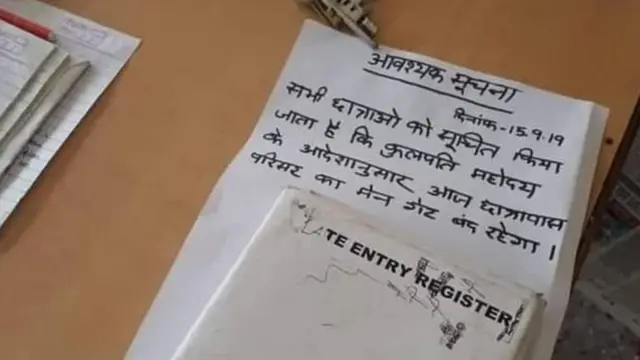 आवश्यक सूचना
दिनांक-15.9.19
सभी छात्राओ को सूचित किया
जाता है कि कुलपति महोदय
के आदेशानुसार आज छात्रावास
परिसर का मेन गेट बंद रहेगा।
TE ENTRY REGISTER